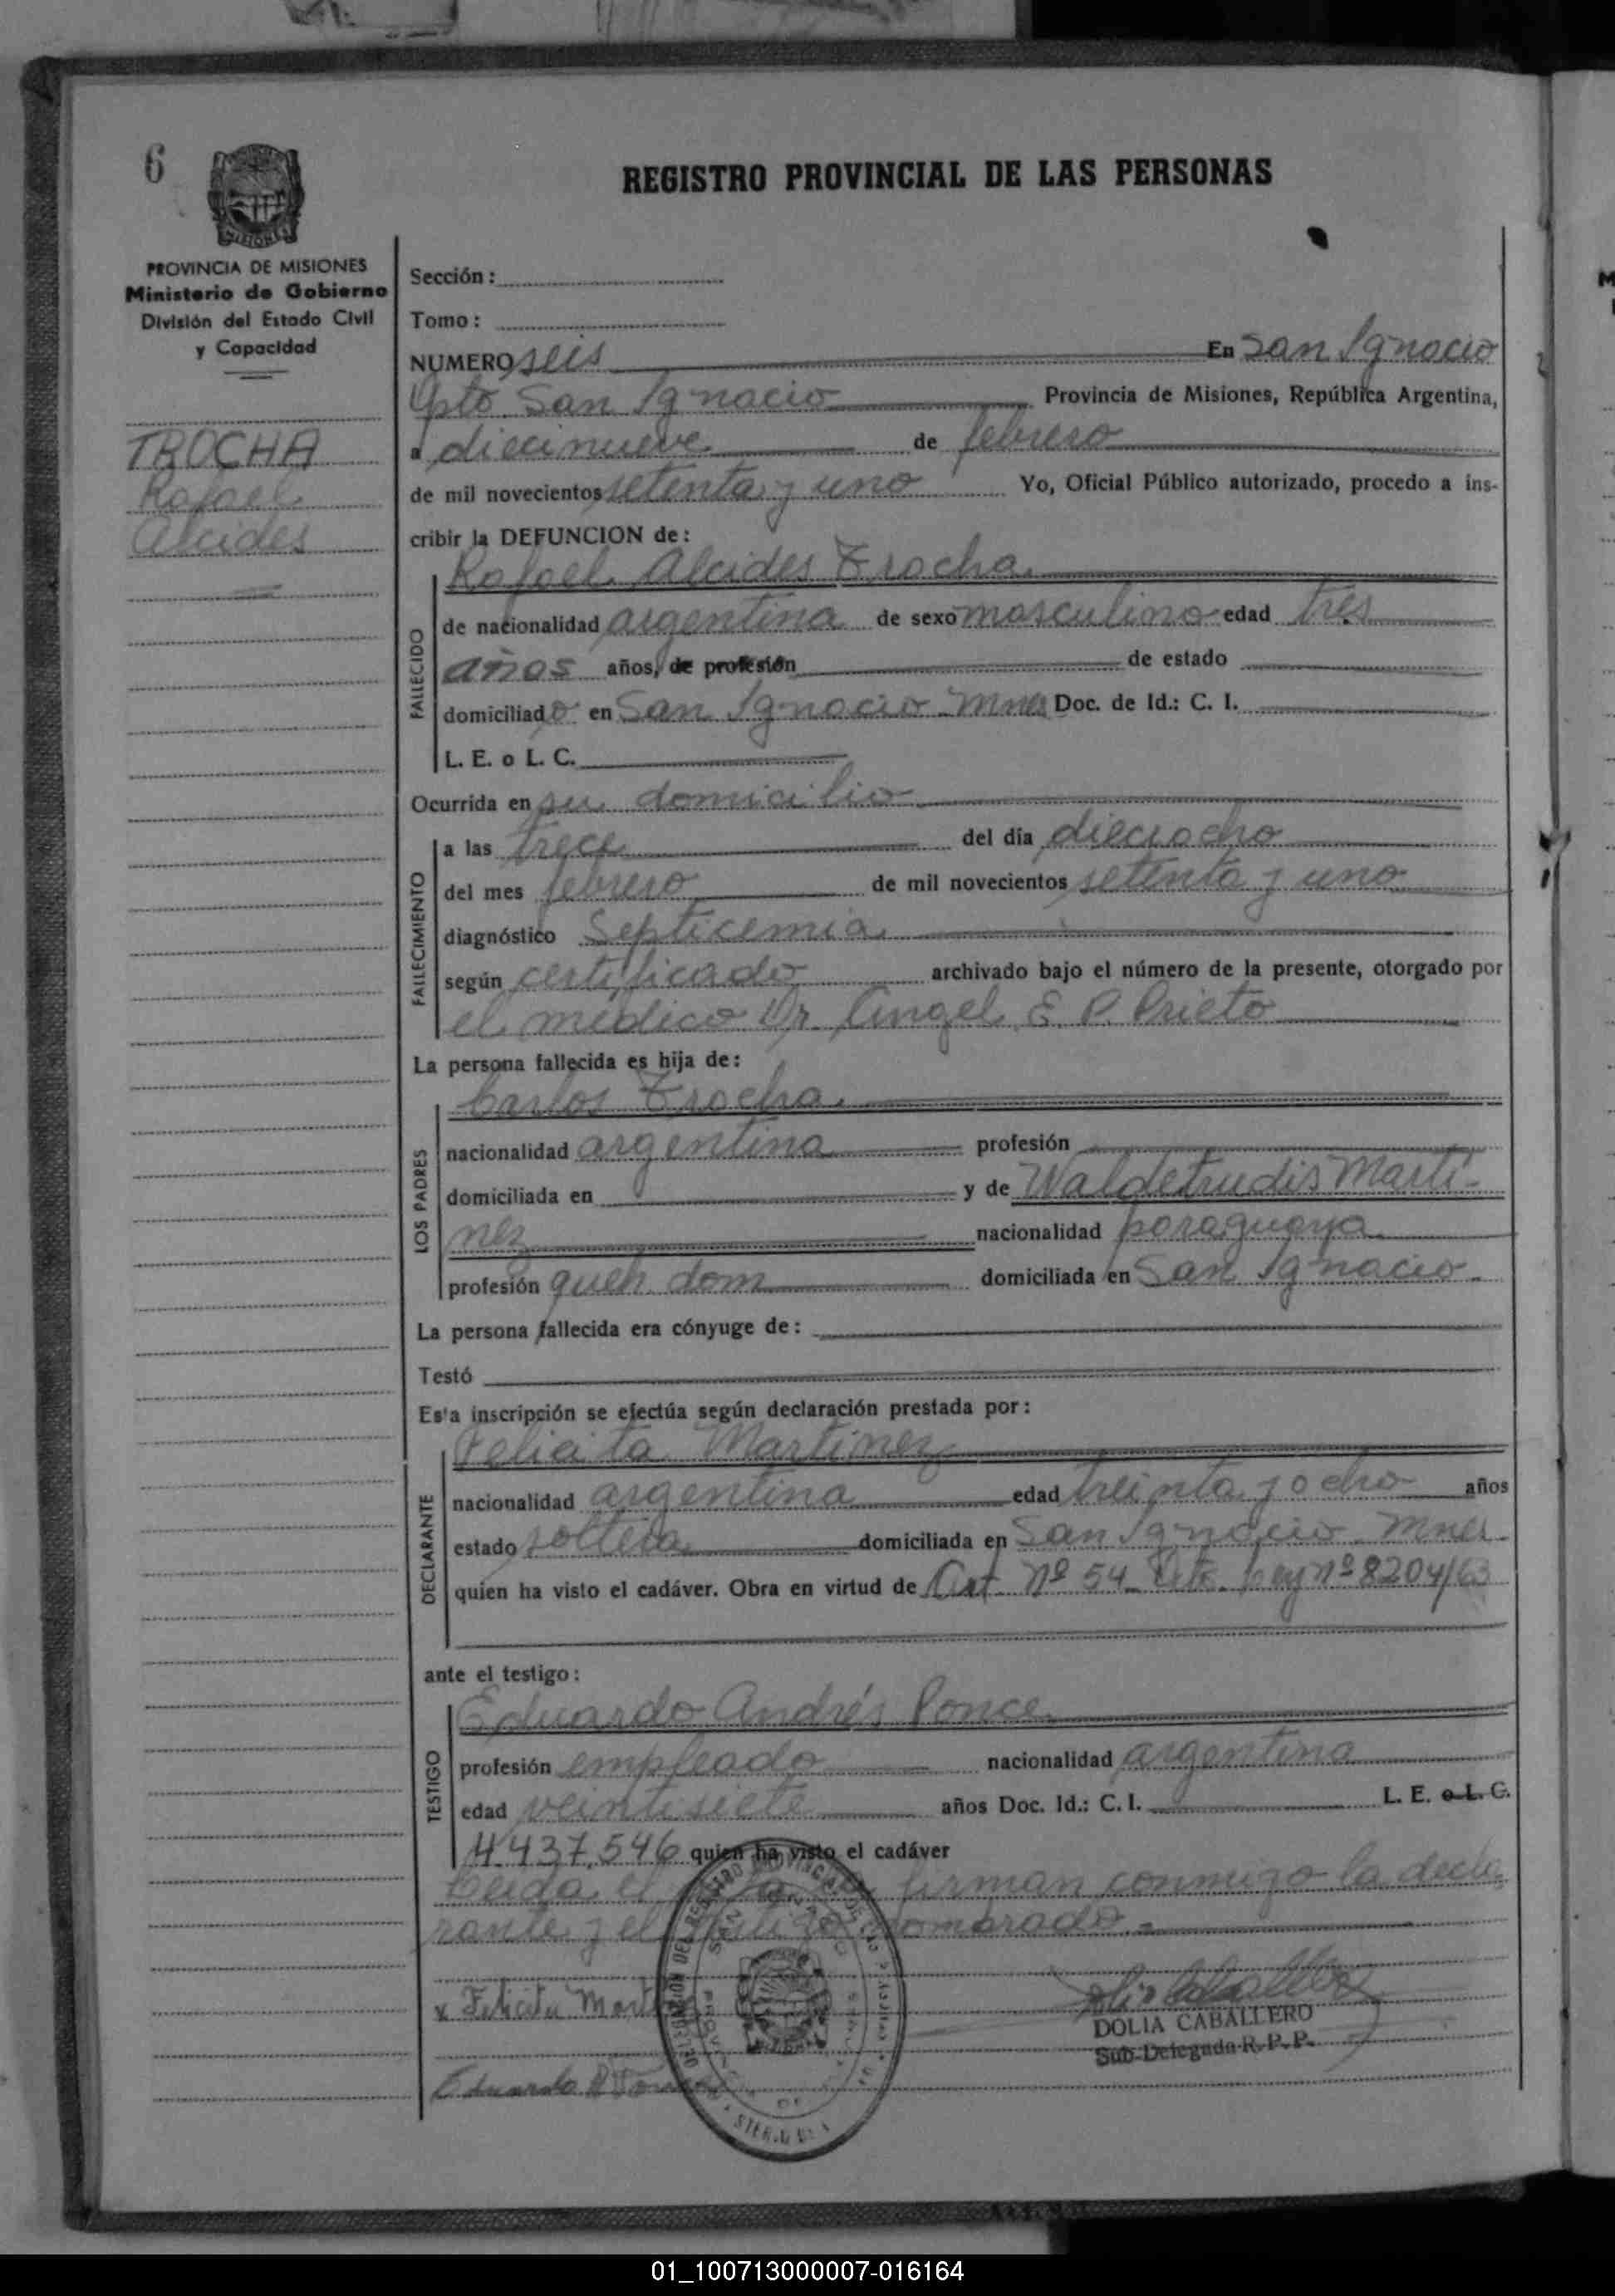 6
REGISTRO PROVINCIAL DE LAS PERSONAS
PROVINCIA DE MISIONES
Ministerio de Gobierno
División del Estado Civil
y Capacidad
TROCHA
Rafael
Alcides
Sección:
Tomo:
NUMERO seis En San Ignacio
Dpto San Ignacio Provincia de Misiones, República Argentina,
a diecinueve de febrero
de mil novecientos setenta y uno Yo, Oficial Público autorizado, procedo a ins-
cribir la DEFUNCION de:
FALLECIDO
Rafael Alcides Trocha
de nacionalidad argentina de sexo masculino edad tres
años años, de profesión de estado
domiciliado en San Ignacio Mnes Doc. de Id.: C. I.
L. E. o L. C.
Ocurrida en su domicilio
FALLECIMIENTO
a las trece del día dieciocho
del mes febrero de mil novecientos setenta y uno
diagnóstico Septicemia
según certificado archivado bajo el número de la presente, otorgado por
el médico Dr Angel E P. Prieto
La persona fallecida es hija de:
LOS PADRES
Carlos Trocha
nacionalidad argentina profesión
domiciliada en y de Waldetrudis Marti-
nez nacionalidad paraguaya
profesión queh. dom domiciliada en San Ignacio
La persona fallecida era cónyuge de:
Testó
Esta inscripción se efectúa según declaración prestada por:
DECLARANTE
Felicita Martinez
nacionalidad argentina edad treinta y ocho años
estado soltera domiciliada en San Ignacio Mnes
quien ha visto el cadáver. Obra en virtud de Art Nº 54 Dto. Ley nº 8204/63
ante el testigo:
TESTIGO
Eduardo Andrés Ponce
profesión empleado nacionalidad argentina
edad veintisiete años Doc. Id.: C. I. L. E. o L. C.
4.437.546 quien ha visto el cadáver
Leida el firman conmigo la decla
rante y el testigo nombrado =
x Felicita Martinez
DOLIA CABALLERO
Sub-Delegada R. P. P.
Eduardo A Ponce
01_100713000007-016164